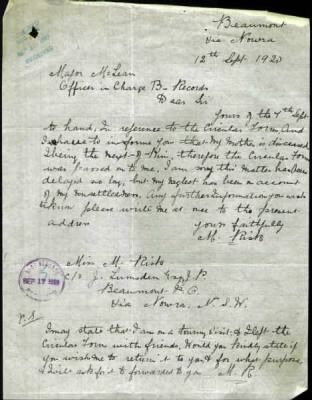 Beaumont
Via Nowra
12th Sept. 1920
Major McLean
Officer in Charge B— Records
Dear Sir
Yours of the 7th Sept
to hand, In reference to the Circular Form, And
I have to inform you that my Mother is deceased
I being the next of Kin, therefore the Circular Form
was passed on to me, I am sorry this matter has been
delayed so long, but my neglect has been on account
of my unsettledness, Any further information you wish
to know please write me at once to the present
address
Yours faithfully
M.
Miss M.
c/o J. Lumsden Esq J.P
Beaumont P.O.
Via Nowra, N.S.W.
P.S
I may state that I am on a touring visit, & I left the
Circular Form with friends, Would you kindly state if
you wish me to return it to you & for what purpose,
& I will ask for it to forwarded to you M.R.